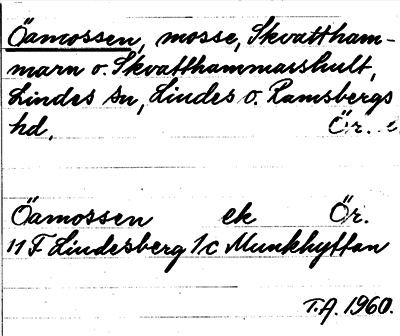 Öamossen, mosse, Skvattham-
marn o. Skvatthammarshult,
Lindes sn, Lindes o. Ramsbergs
hd, Ör.
Öamossen ek Ör.
11 F Lindesberg 1c Munkhyttan
T.A. 1960.